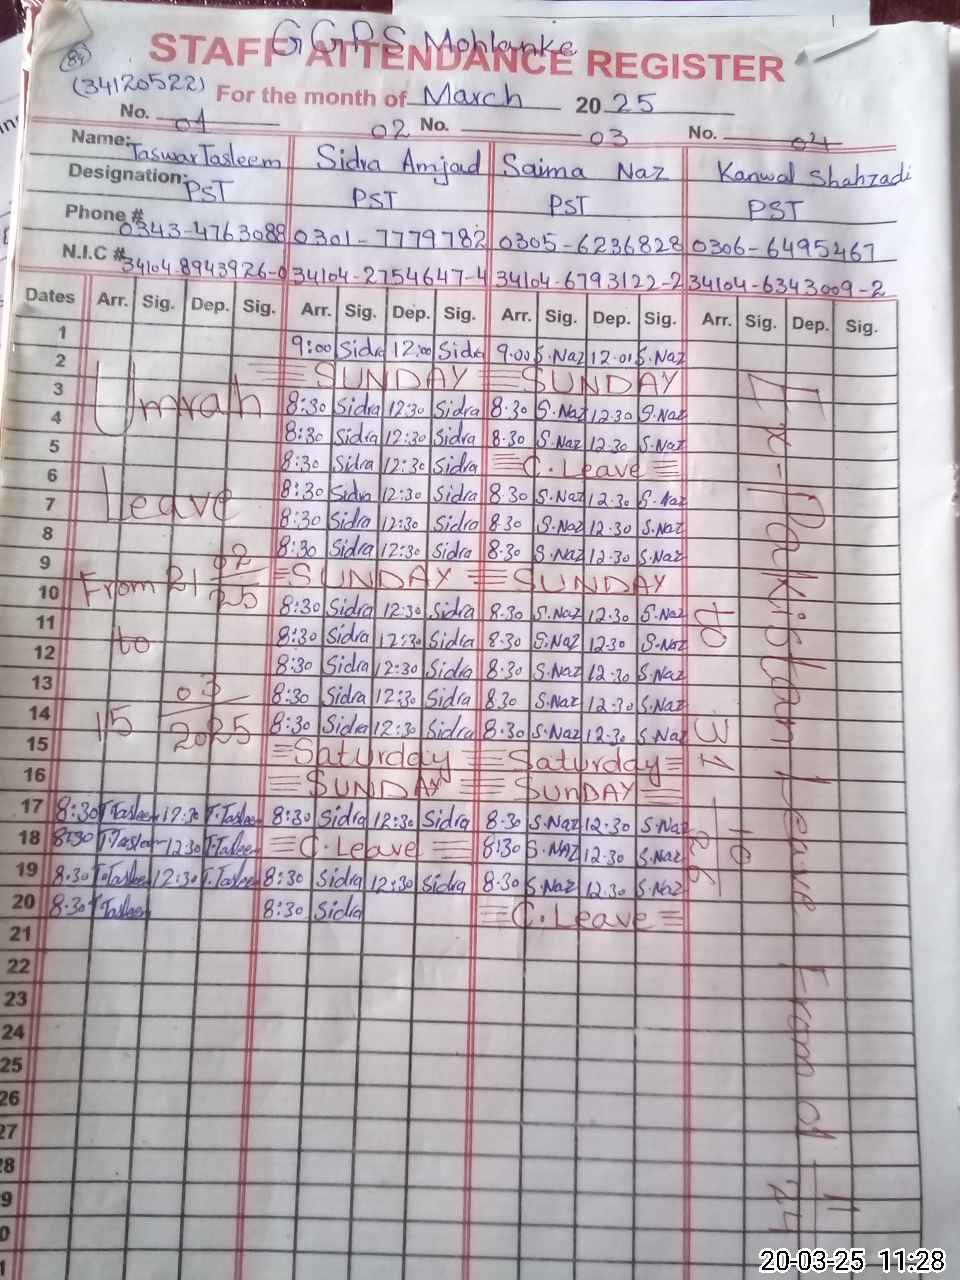 G G P S Mohlanke
(84) STAFF ATTENDANCE REGISTER
(34120522) For the month of March 2025
No. 01 02 No. 03 No. 04
Name: Taswar Tasleem Sidra Amjad Saima Naz Kanwal Shahzadi
Designation: PST PST PST PST
Phone # 0343-4763088 0301-7779782 0305-6236828 0306-6495467
N.I.C # 34104-8943926-0 34104-2754647-4 34104-6793122-2 34104-6343009-2
Dates Arr. Sig. Dep. Sig. Arr. Sig. Dep. Sig. Arr. Sig. Dep. Sig. Arr. Sig. Dep. Sig.
1 9:00 Sidra 12:00 Sidra 9.00 S.Naz 12.01 S.Naz
2 SUNDAY SUNDAY
3 Umrah 8:30 Sidra 12:30 Sidra 8.30 S.Naz 12.30 S.Naz
4 8:30 Sidra 12:30 Sidra 8.30 S.Naz 12.30 S.Naz
5 8:30 Sidra 12:30 Sidra C.Leave
6 Leave 8:30 Sidra 12:30 Sidra 8.30 S.Naz 12.30 S.Naz
7 8:30 Sidra 12:30 Sidra 8.30 S.Naz 12.30 S.Naz
8 8:30 Sidra 12:30 Sidra 8.30 S.Naz 12.30 S.Naz
9 From 21 02/25 SUNDAY SUNDAY
10 8:30 Sidra 12:30 Sidra 8.30 S.Naz 12.30 S.Naz
11 to 8:30 Sidra 12:30 Sidra 8.30 S.Naz 12.30 S.Naz
12 8:30 Sidra 12:30 Sidra 8.30 S.Naz 12.30 S.Naz
13 8:30 Sidra 12:30 Sidra 8.30 S.Naz 12.30 S.Naz
14 15 03/2025 8:30 Sidra 12:30 Sidra 8.30 S.Naz 12.30 S.Naz
15 Saturday Saturday
16 SUNDAY SUNDAY
17 8:30 T.Tasleem 12:30 T.Tasleem 8:30 Sidra 12:30 Sidra 8.30 S.Naz 12.30 S.Naz
18 8:30 T.Tasleem 12:30 T.Tasleem C.Leave 8:30 S.NAZ 12.30 S.Naz
19 8.30 T.Tasleem 12:30 T.Tasleem 8:30 Sidra 12:30 Sidra 8.30 S.Naz 12.30 S.Naz
20 8.30 T.Tasleem 8:30 Sidra C.Leave
21
22
23
24
25
26
27
28
9
0
1
Ex-Pakistan Leave From 01 11/24
to 31 10/26
20-03-25 11:28